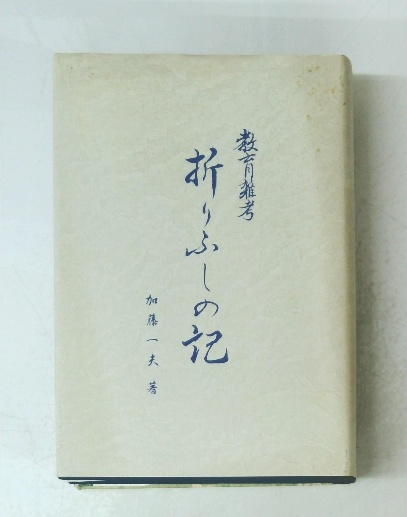 教育雑考
折りふしの記
加藤一夫 著